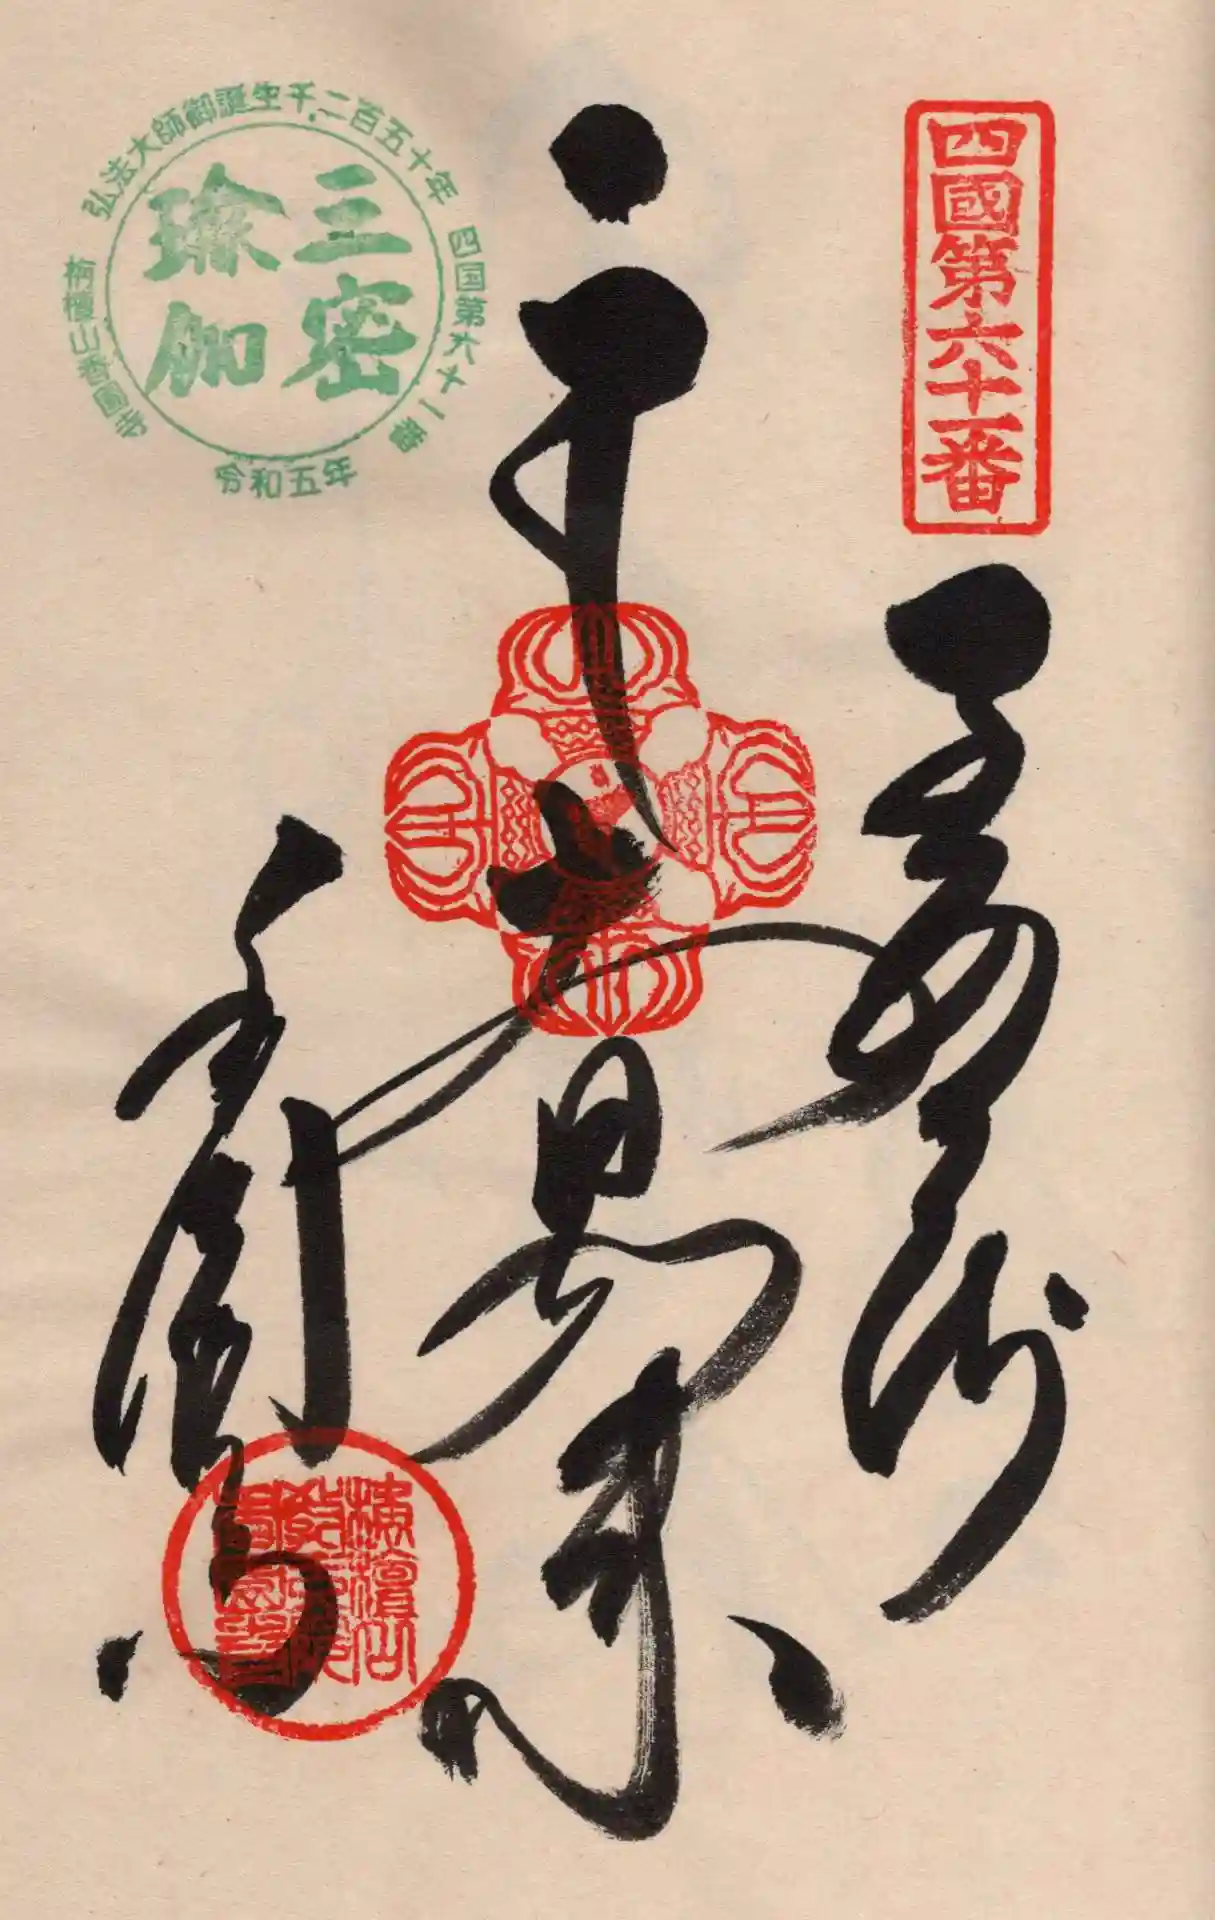 四國第六十一番
大日如来
香園寺
弘法大師御誕生千二百五十年
四国第六十一番
栴檀山香園寺
令和五年
三密
瑜伽
栴檀山
教王院
香園寺